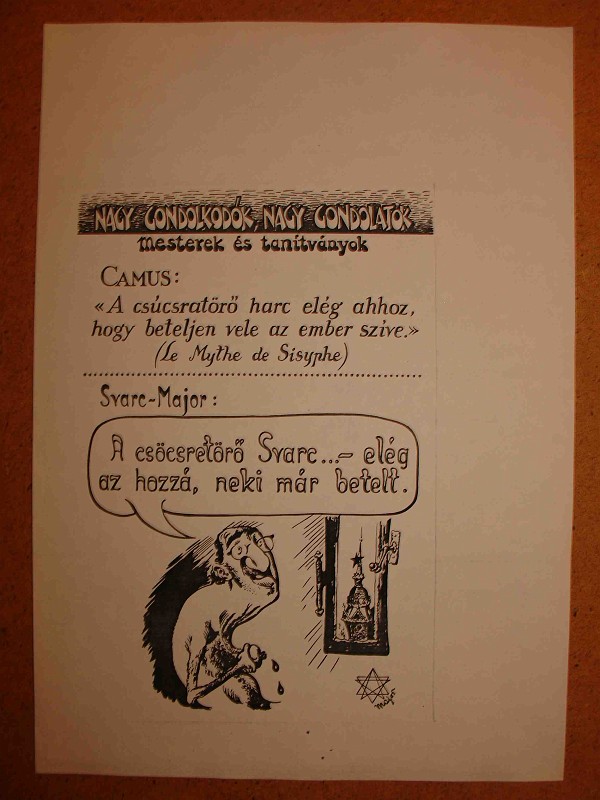 NAGY GONDOLKODÓK, NAGY GONDOLATOK
mesterek és tanítványok
CAMUS:
«A csúcsratörő harc elég ahhoz,
hogy beteljen vele az ember szive.»
(Le Mythe de Sisyphe)
Svarc-Major:
A csöcsretörő Svarc...- elég
az hozzá, neki már betelt.
major